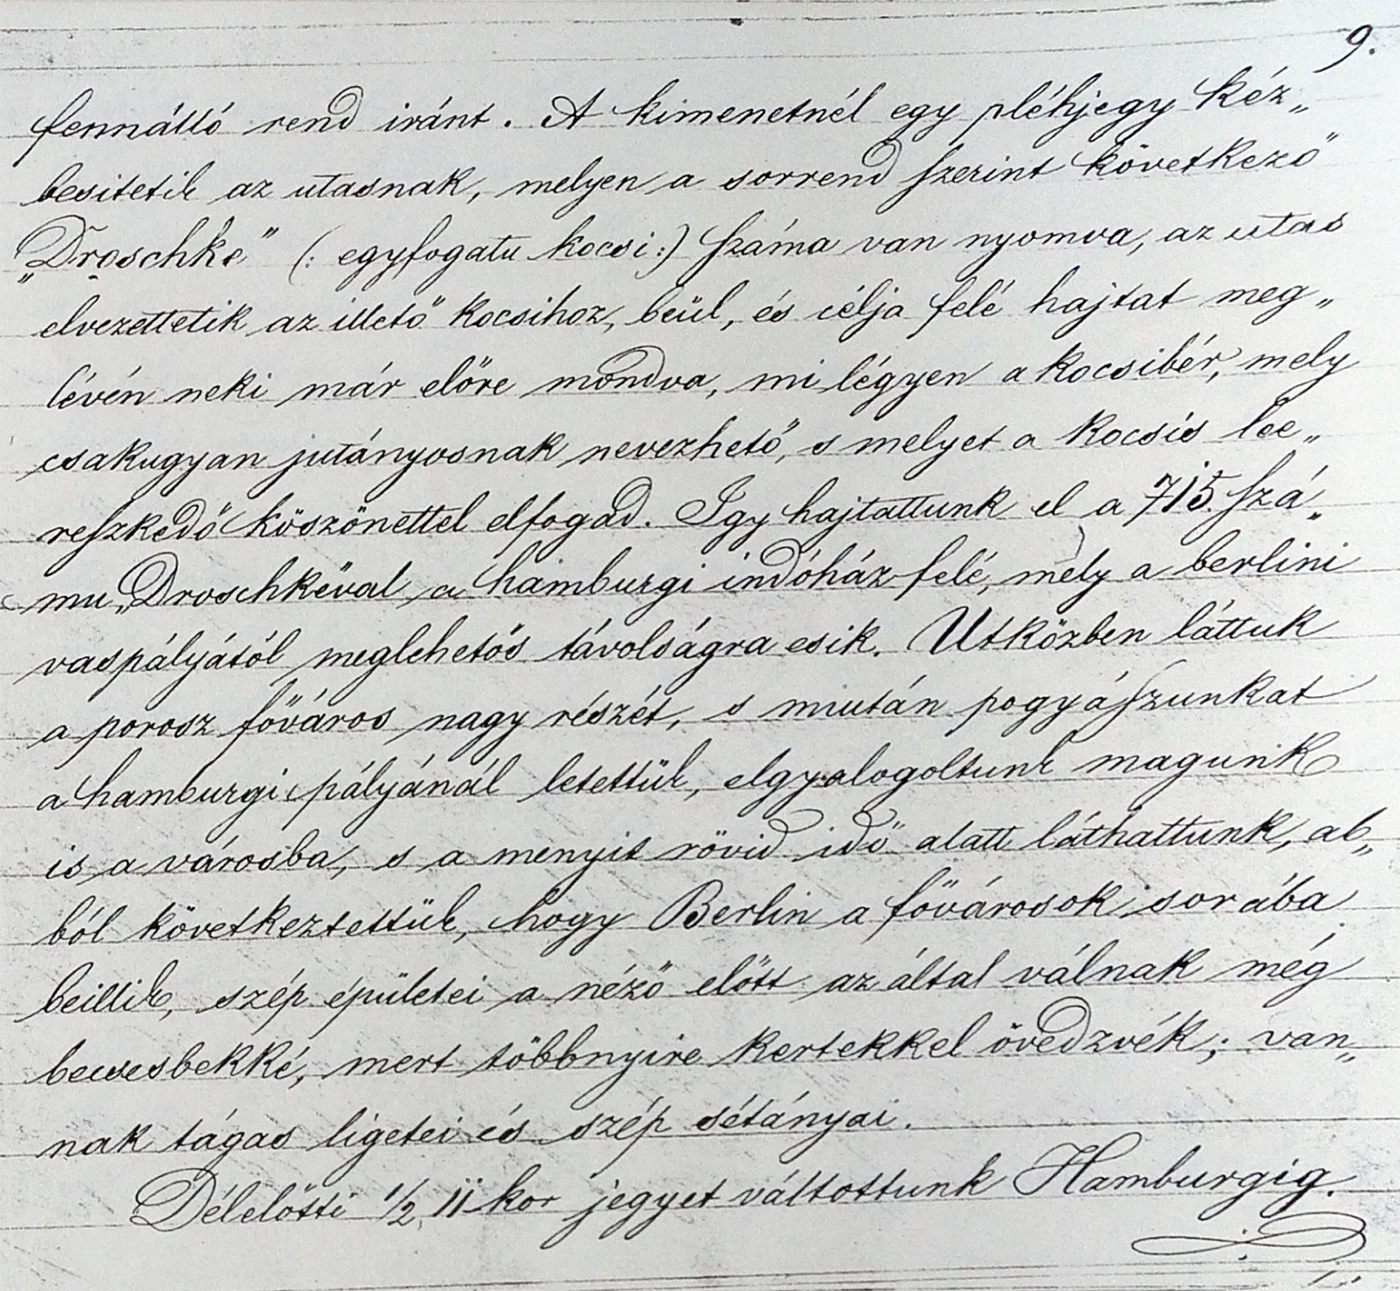 9.
fennálló rend iránt. A kimenetnél egy pléhjegy kéz„
besitetik az utasnak, melyen a sorrend szerint következő
„Droschke" (: egyfogatu kocsi :) száma van nyomva, az utas
elvezettetik az illető kocsihoz, beül, és célja felé hajtat meg„
lévén neki már előre mondva, mi légyen a kocsibér, mely
csakugyan jutányosnak nevezhető, s melyet a kocsis lee„
reszkedő köszönettel elfogad. Igy hajtattunk el a 715. szá„
mu „Droschkéval a hamburgi indóház felé, mely a berlini
vaspályától meglehetős távolságra esik. Utközben láttuk
a porosz főváros nagy részét, s miután pogyászunkat
a hamburgi pályánál letettük, elgyalogoltunk magunk
is a városba, s a menyit rövid idő alatt láthattunk, ab„
ból következtettük, hogy Berlin a fővárosok sorába
beillik, szép épületei a néző előtt az által válnak még
becsesbekké, mert többnyire kertekkel övedzvék; van„
nak tágas ligetei és szép sétányai.
Délelőtti 1/2 11 kor jegyet váltottunk Hamburgig.